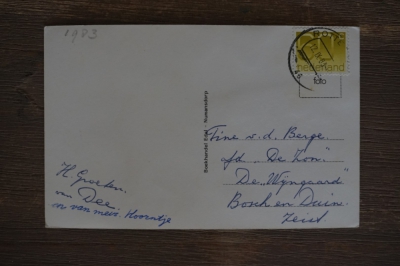 1983
nederland
foto
Boekhandel Emé - Numansdorp
Fine v.d. Berge.
afd „De Zon".
De „Wijngaard"
Bosch en Duin.
Zeist
H. Groeten.
van Dee
en van mevr.